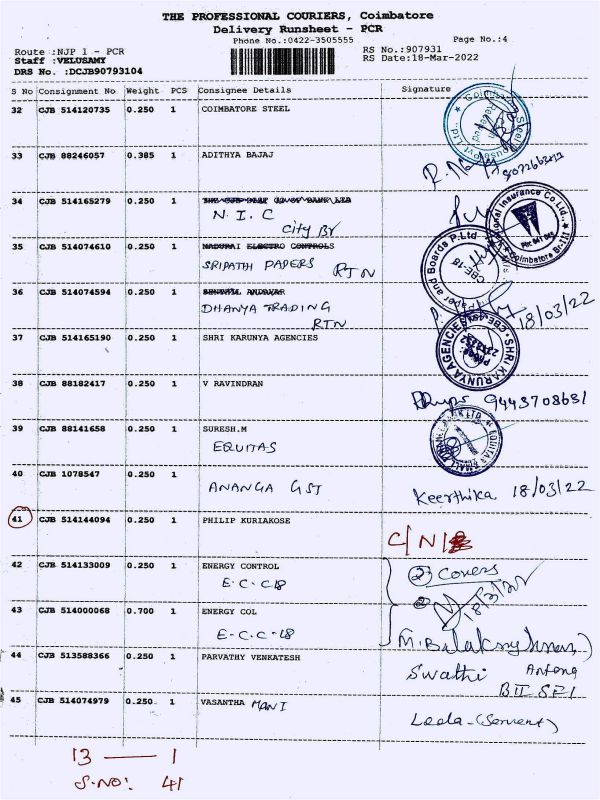 THE PROFESSIONAL COURIERS, Coimbatore
Delivery Runsheet - PCR
Phone No.:0422-3505555
Page No.:4
Route :NJP 1 - PCR
RS No.:907931
Staff :VELUSAMY
RS Date:18-Mar-2022
DRS No. :DCJB90793104
S No Consignment No Weight PCS Consignee Details Signature
32 CJB 514120735 0.250 1 COIMBATORE STEEL
33 CJB 88246057 0.385 1 ADITHYA BAJAJ
34 CJB 514165279 0.250 1
N.I.C
City Br
35 CJB 514074610 0.250 1 MADURAI ELECTRO CONTROLS
SRIPATHI PAPERS RTN
36 CJB 514074594 0.250 1
DHANYA TRADING
RTN
18/03/22
37 CJB 514165190 0.250 1 SHRI KARUNYA AGENCIES
SHRI KARUNYA AGENCIES
38 CJB 88182417 0.250 1 V RAVINDRAN
9443708631
39 CJB 88141658 0.250 1 SURESH.M
EQUITAS
40 CJB 1078547 0.250 1
ANANGA GST
Keerthika 18/03/22
41 CJB 514144094 0.250 1 PHILIP KURIAKOSE
C/N/
42 CJB 514133009 0.250 1 ENERGY CONTROL
E.C.C-18
2 Covers
43 CJB 514000068 0.700 1 ENERGY COL
E-C-C-18
44 CJB 513588366 0.250 1 PARVATHY VENKATESH
Swathi
45 CJB 514074979 0.250 1 VASANTHA MANI
Leela-(Servent)
13 — 1
S.NO: 41